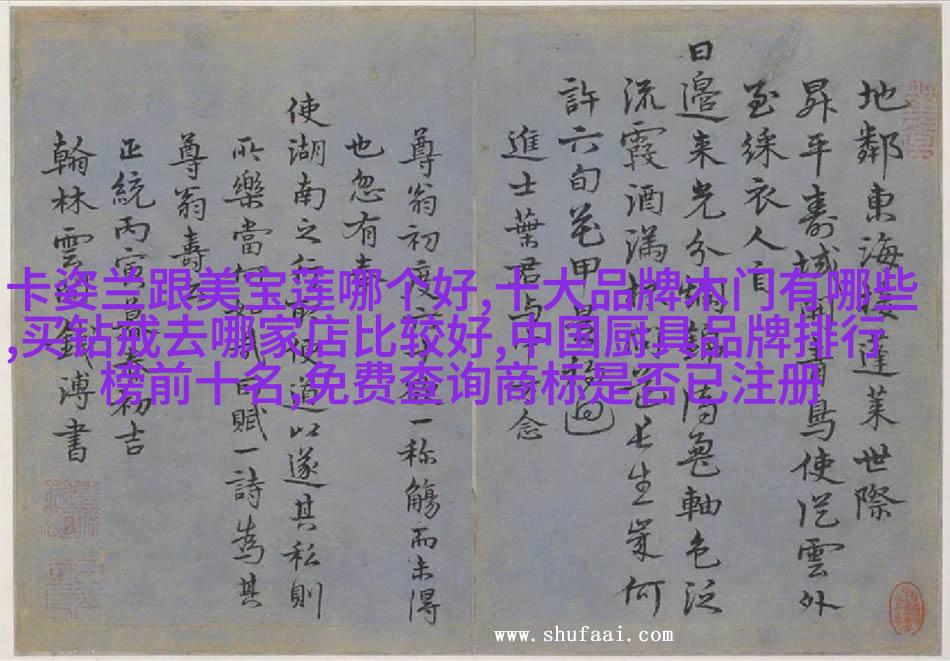 地鄰東海接蓬萊世際
昇平壽域開青鳥使從雲外
至綵衣人自
日邊來光分軸色泛
流霞酒滿長生箓何
許六旬花甲過
進士葉君與中念
尊翁初度一称觴而未得
也忽有奉
使湖南之行取便道以遂其私則
所樂當何如賦一詩為其
尊翁壽云
正統丙寅孟春初吉
翰林雲間錢溥書
卡姿兰跟美宝莲哪个好,十大品牌木门有哪些
,买钻戒去哪家店比较好,中国厨具品牌排行
榜前十名,免费查询商标是否已注册
www.shufaai.com